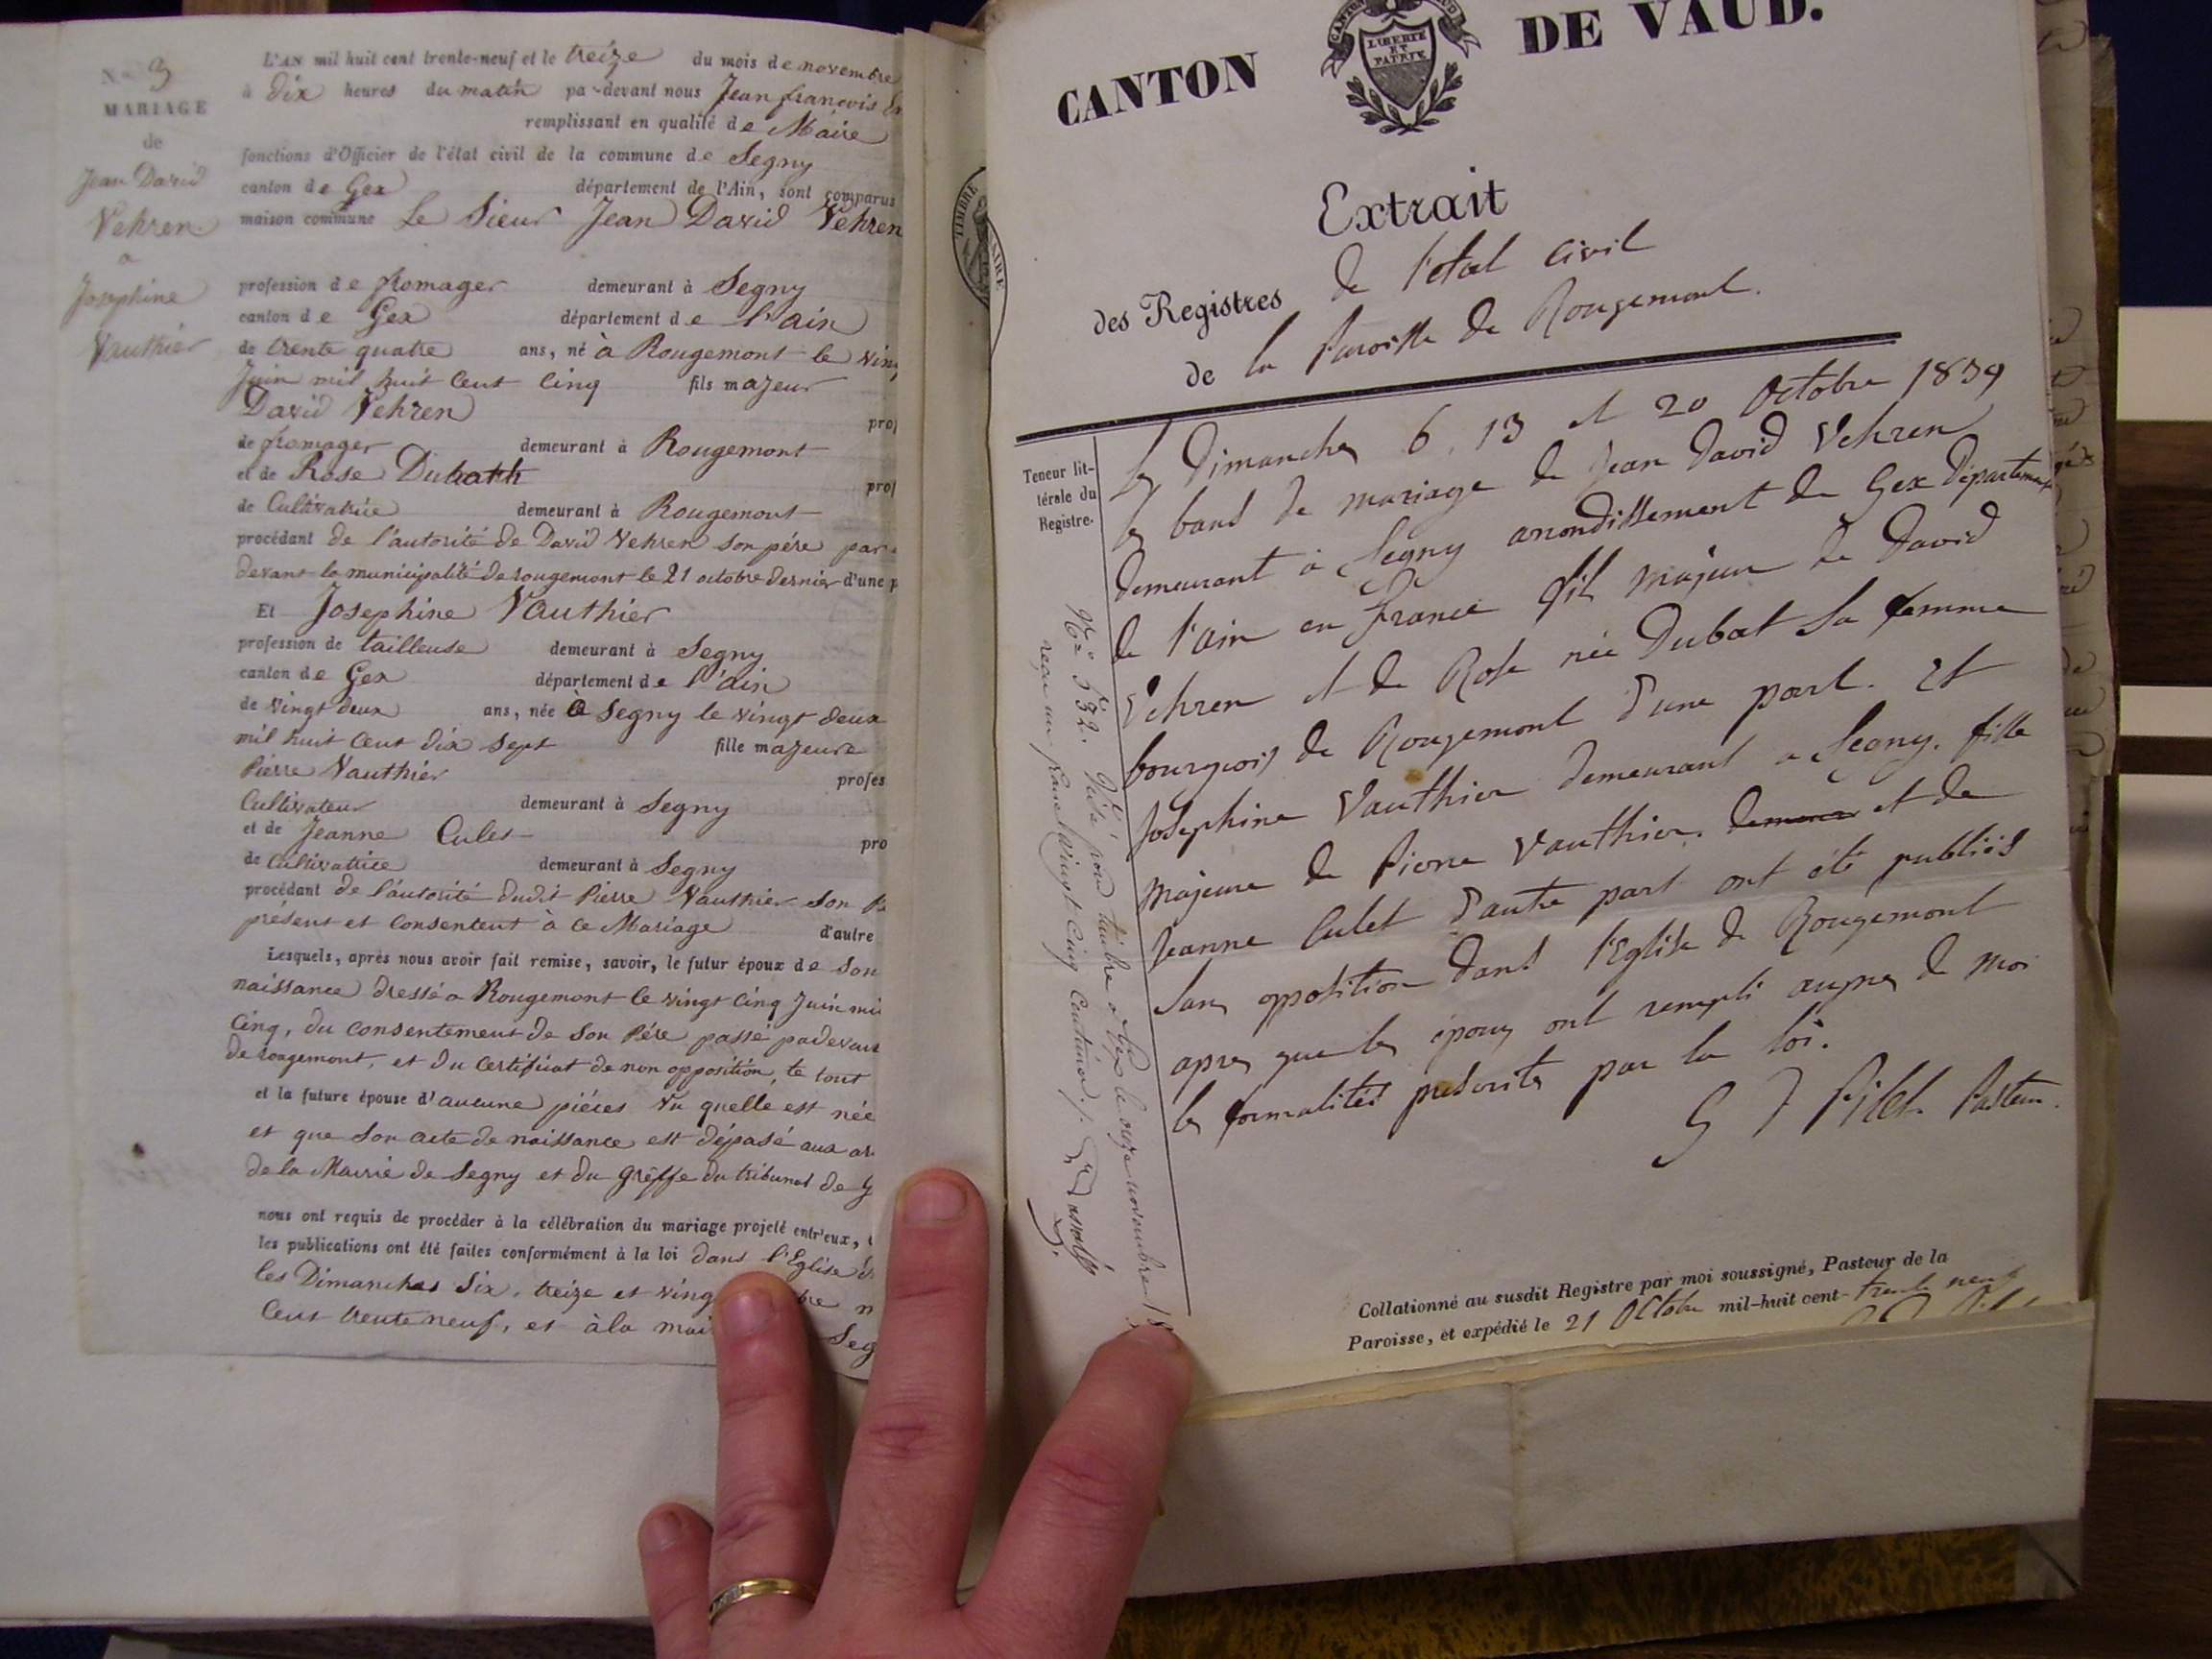 No 3
MARIAGE
de
Jean David
Vehren
a
Josephine
Vauthier
L'AN mil huit cent trente-neuf et le treize du mois de novembre
à dix heures du matin par-devant nous Jean françois
remplissant en qualité de Maire
fonctions d'Officier de l'état civil de la commune de Segny
canton de Gex département de l'Ain, sont comparus
maison commune Le Sieur Jean David Vehren
profession de fromager demeurant à Segny
canton de Gex département de l'ain
de trente quatre ans, né à Rougemont le
Juin mil huit Cent Cinq fils majeur
David Vehren
de fromager demeurant à Rougemont
et de Rose Dubath
de Cultivatrice demeurant à Rougemont
procédant de l'autorité de David Vehren son père par
devant la municipalité de rougemont le 21 octobre dernier d'une
Et Josephine Vauthier
profession de tailleuse demeurant à Segny
canton de Gex département de l'ain
de vingt deux ans, née à Segny le vingt deux
mil huit Cent dix sept fille majeure
Pierre Vauthier
Cultivateur demeurant à Segny
et de Jeanne Culet
de Cultivatrice demeurant à Segny
procédant de l'autorité dudit Pierre Vauthier son
présent et Consentent à ce Mariage d'autre
Lesquels, après nous avoir fait remise, savoir, le futur époux de son
naissance dressé a Rougemont le vingt Cinq Juin
Cinq, du Consentement de son Père passé padevant
de rougemont, et du Certificat de non opposition, te tout
et la future épouse d'aucune pièces vu quelle est née
et que Son acte de naissance est dépasé aux
de la Mairie de Segny et du Greffe du tribunal de
nous ont requis de procéder à la célébration du mariage projeté entr'eux,
les publications ont été faites conformément à la loi dans l'Eglise
les Dimanches Six, treize et
Cent trente neuf, et à la
CANTON DE VAUD.
LIBERTÉ
ET
PATRIE
TIMBRE
Extrait
des Registres de l'etat civil
de la Paroisse de Rougemont.
Teneur lit-
térale du
Registre.
les Dimanches 6, 13 et 20 Octobre 1839
les bans de mariage de Jean David Vehren
demeurant à Segny arrondissement de Gex Département
de l'ain en france fils majeur de David
Vehren et de Rose née Dubat sa femme
bourgeois de Rougemont d'une part. Et
Josephine Vauthier demeurant a Segny, fille
majeure de Pierre Vauthier. et de
Jeanne Culet d'autre part ont été publiés
sans opposition dans l'Eglise de Rougemont
apres que les époux ont rempli aupres de moi
les formalités prescrites par la loi.
G F Pilet Pasteur.
No 532. Visé pour timbre à Gex le onze novembre 18
reçu un franc vingt cinq Centimes.
Collationné au susdit Registre par moi soussigné, Pasteur de la
Paroisse, et expédié le 21 Octobre mil-huit cent-trente neuf